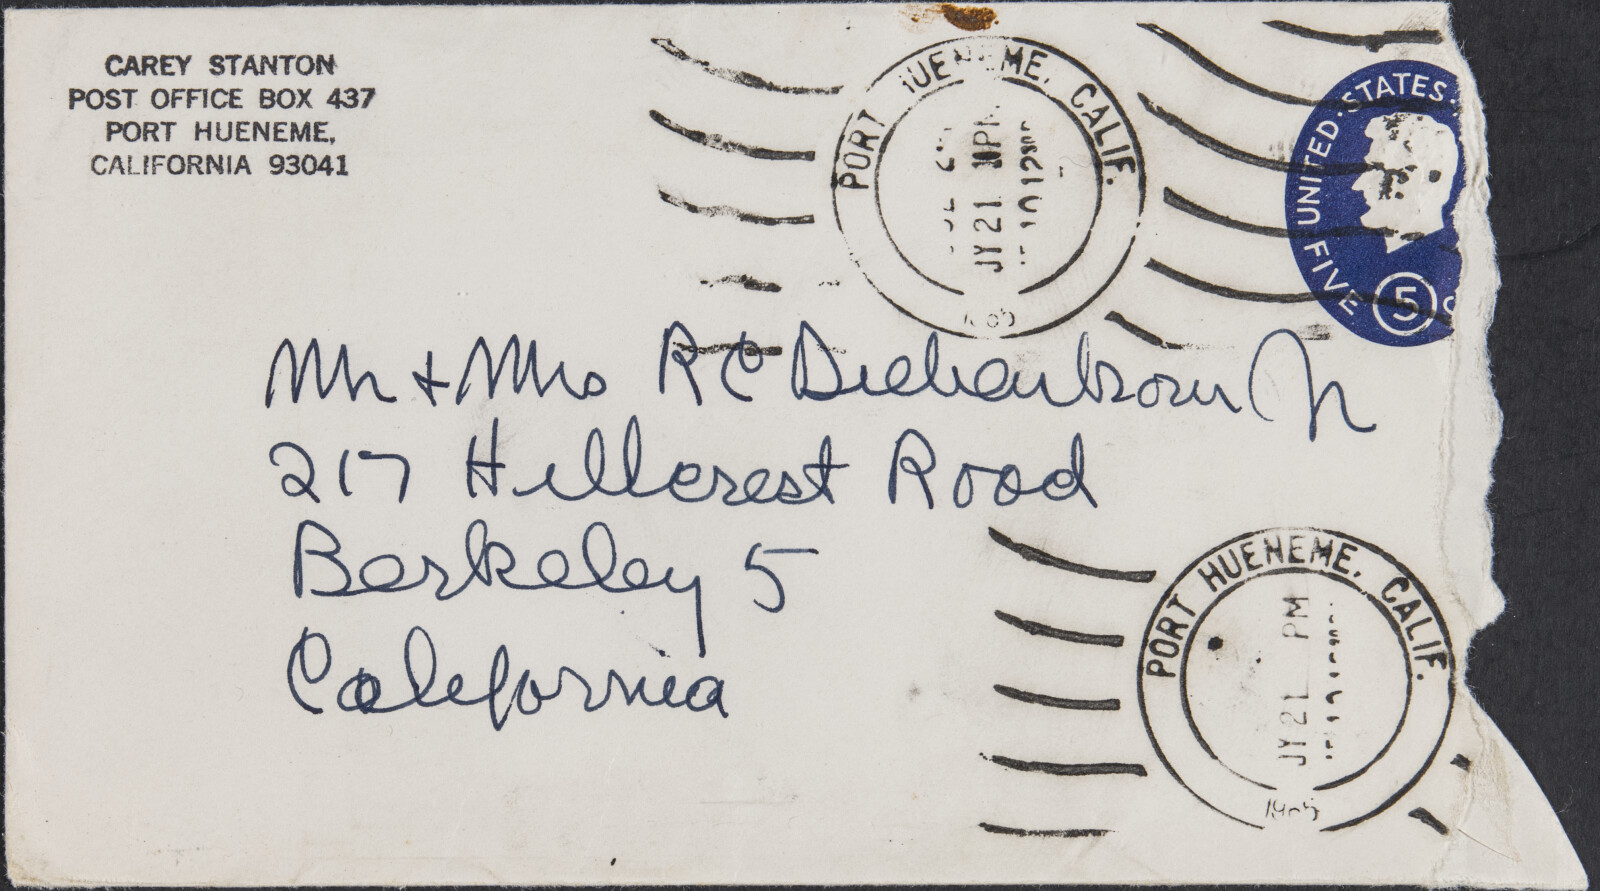 CAREY STANTON
POST OFFICE BOX 437
PORT HUENEME,
CALIFORNIA 93041
PORT HUENEME, CALIF.
JY 21 PM
UNITED·STATES·
FIVE
5
Mr + Mrs R C Diebenkorn Jr
217 Hillcrest Road
Berkeley 5
California
PORT HUENEME, CALIF.
JY 21 PM
1965